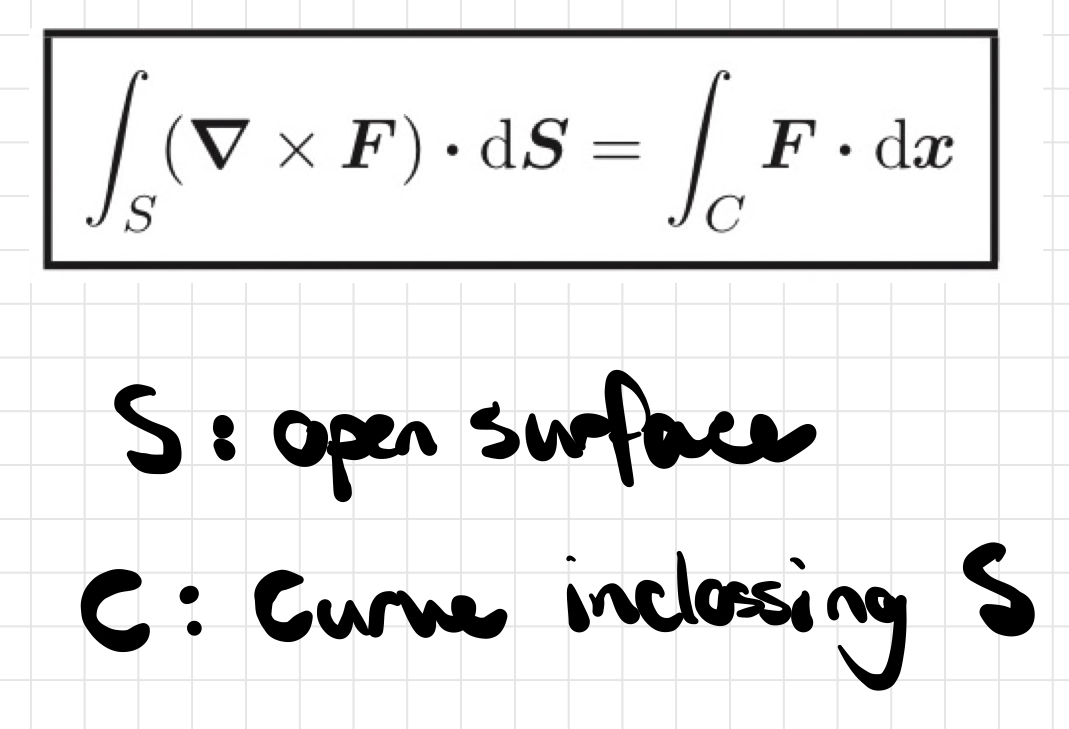 ∫_S (∇ × F) · dS = ∫_C F · dx
S: open surface
C: Curve inclossing S